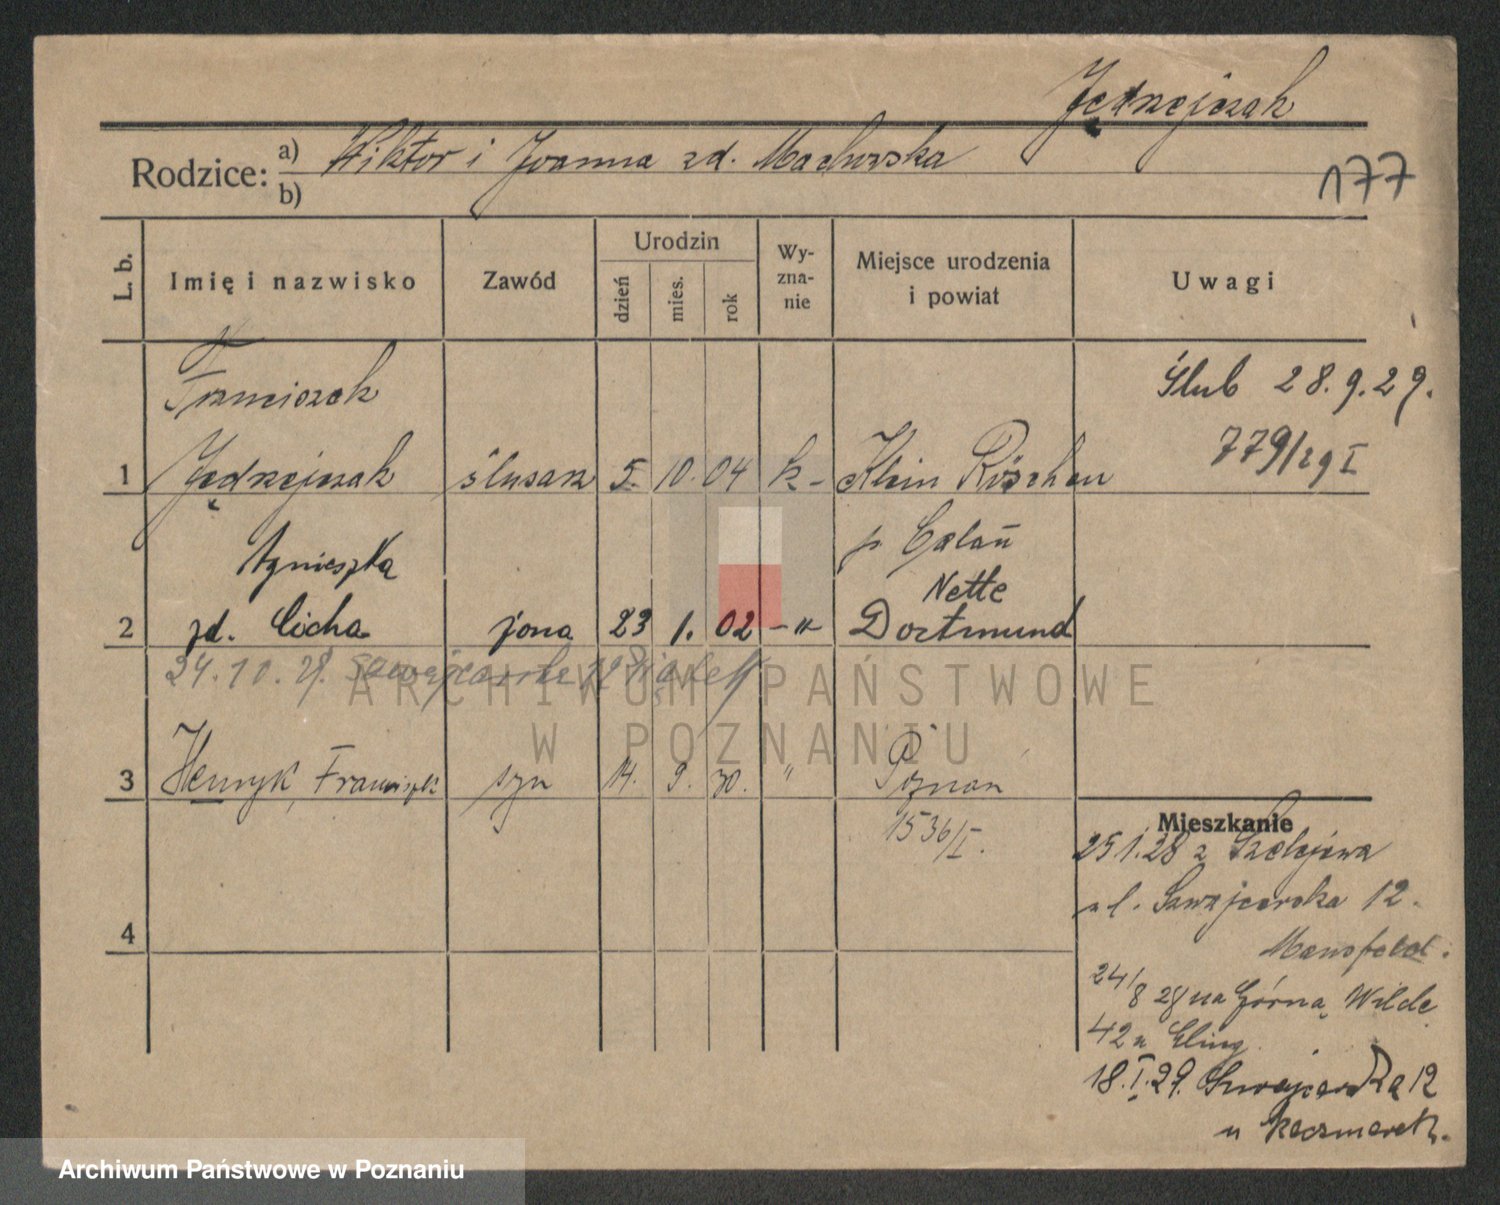 Jędrzejczak
Rodzice: a) Wiktor i Joanna zd.
b)
177
L. b.
Imię i nazwisko
Zawód
Urodzin
dzień
mies.
rok
Wy-
zna-
nie
Miejsce urodzenia
i powiat
Uwagi
Franciszek
Ślub 28.9.29.
779/29 I
1 Jędrzejczak ślusarz 5. 10. 04 k- Klein Röschen
p Calau
Agnieszka Nette
2 zd. Cicha żona 23 1. 02 -"- Dortmund
24.10.
3 Henryk, Franciszek syn 14. 9. 30. " Poznan
1536/I.
Mieszkanie
25 1.28 z
ul. Szwajcarska 12.
4
24/8 28 na Górną Wildę
42 u
18.I.29. Szwajcarska 12
u Kaczmarek.
ARCHIWUM PAŃSTWOWE
W POZNANIU
Archiwum Państwowe w Poznaniu